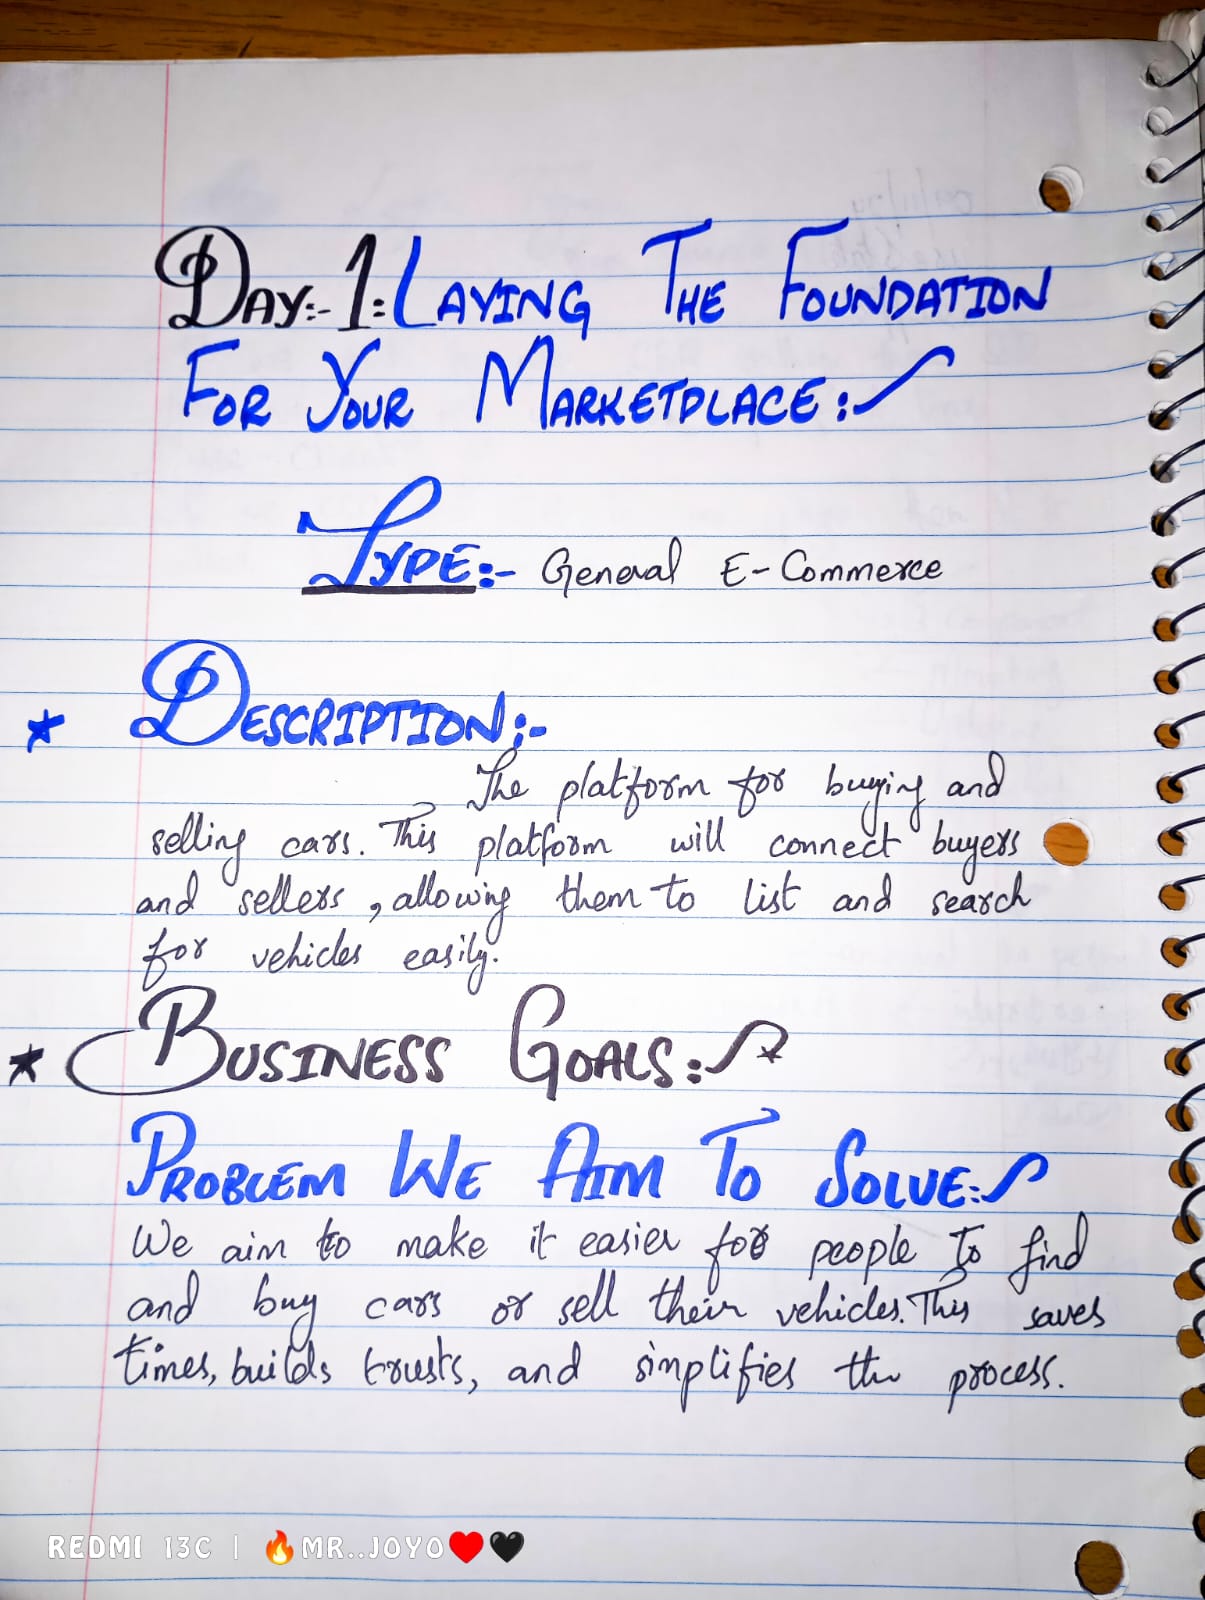 Day:- 1: Laying The Foundation
For Your Marketplace:
Type:- General E-Commerce
Description:-
The platform for buying and
selling cars. This platform will connect buyers
and sellers, allowing them to list and search
for vehicles easily.
Business Goals:
Problem We Aim To Solve:
We aim to make it easier for people to find
and buy cars or sell their vehicles. This saves
times, builds trusts, and simplifies the process.
REDMI 13C | 🔥MR..JOYO❤️🖤